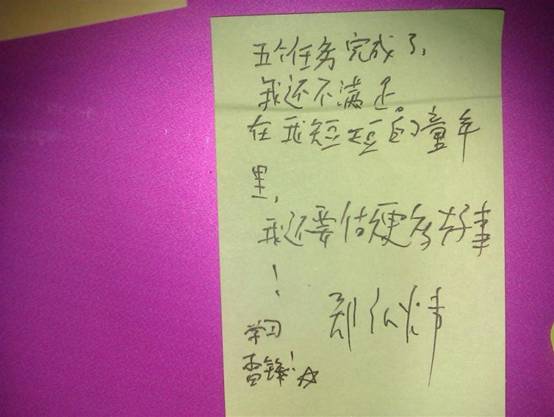 五个任务完成了,
我还不满足。
在我短短的童年
里,
我还要做更多好事
!
学习
雷锋!